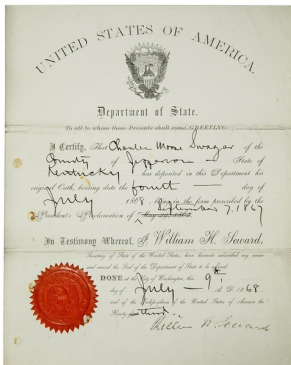 UNITED STATES OF AMERICA.
Department of State.
To all to whom these Presents shall come, GREETING:
I Certify, That Charles Moore Swagar of the
County of Jefferson State of
Kentucky has deposited in this Department his
original Oath, bearing date the fourth day of
July 1868, in the form prescribed by the
President's Proclamation of September 7, 1867
In Testimony Whereof, I, William H. Seward,
Secretary of State of the United States, have hereunto subscribed my name
and caused the Seal of the Department of State to be affixed.
DONE at the City of Washington, this 9th
day of July A. D. 1868
and of the Independence of the United States of America the
Ninety third.
William H. Seward